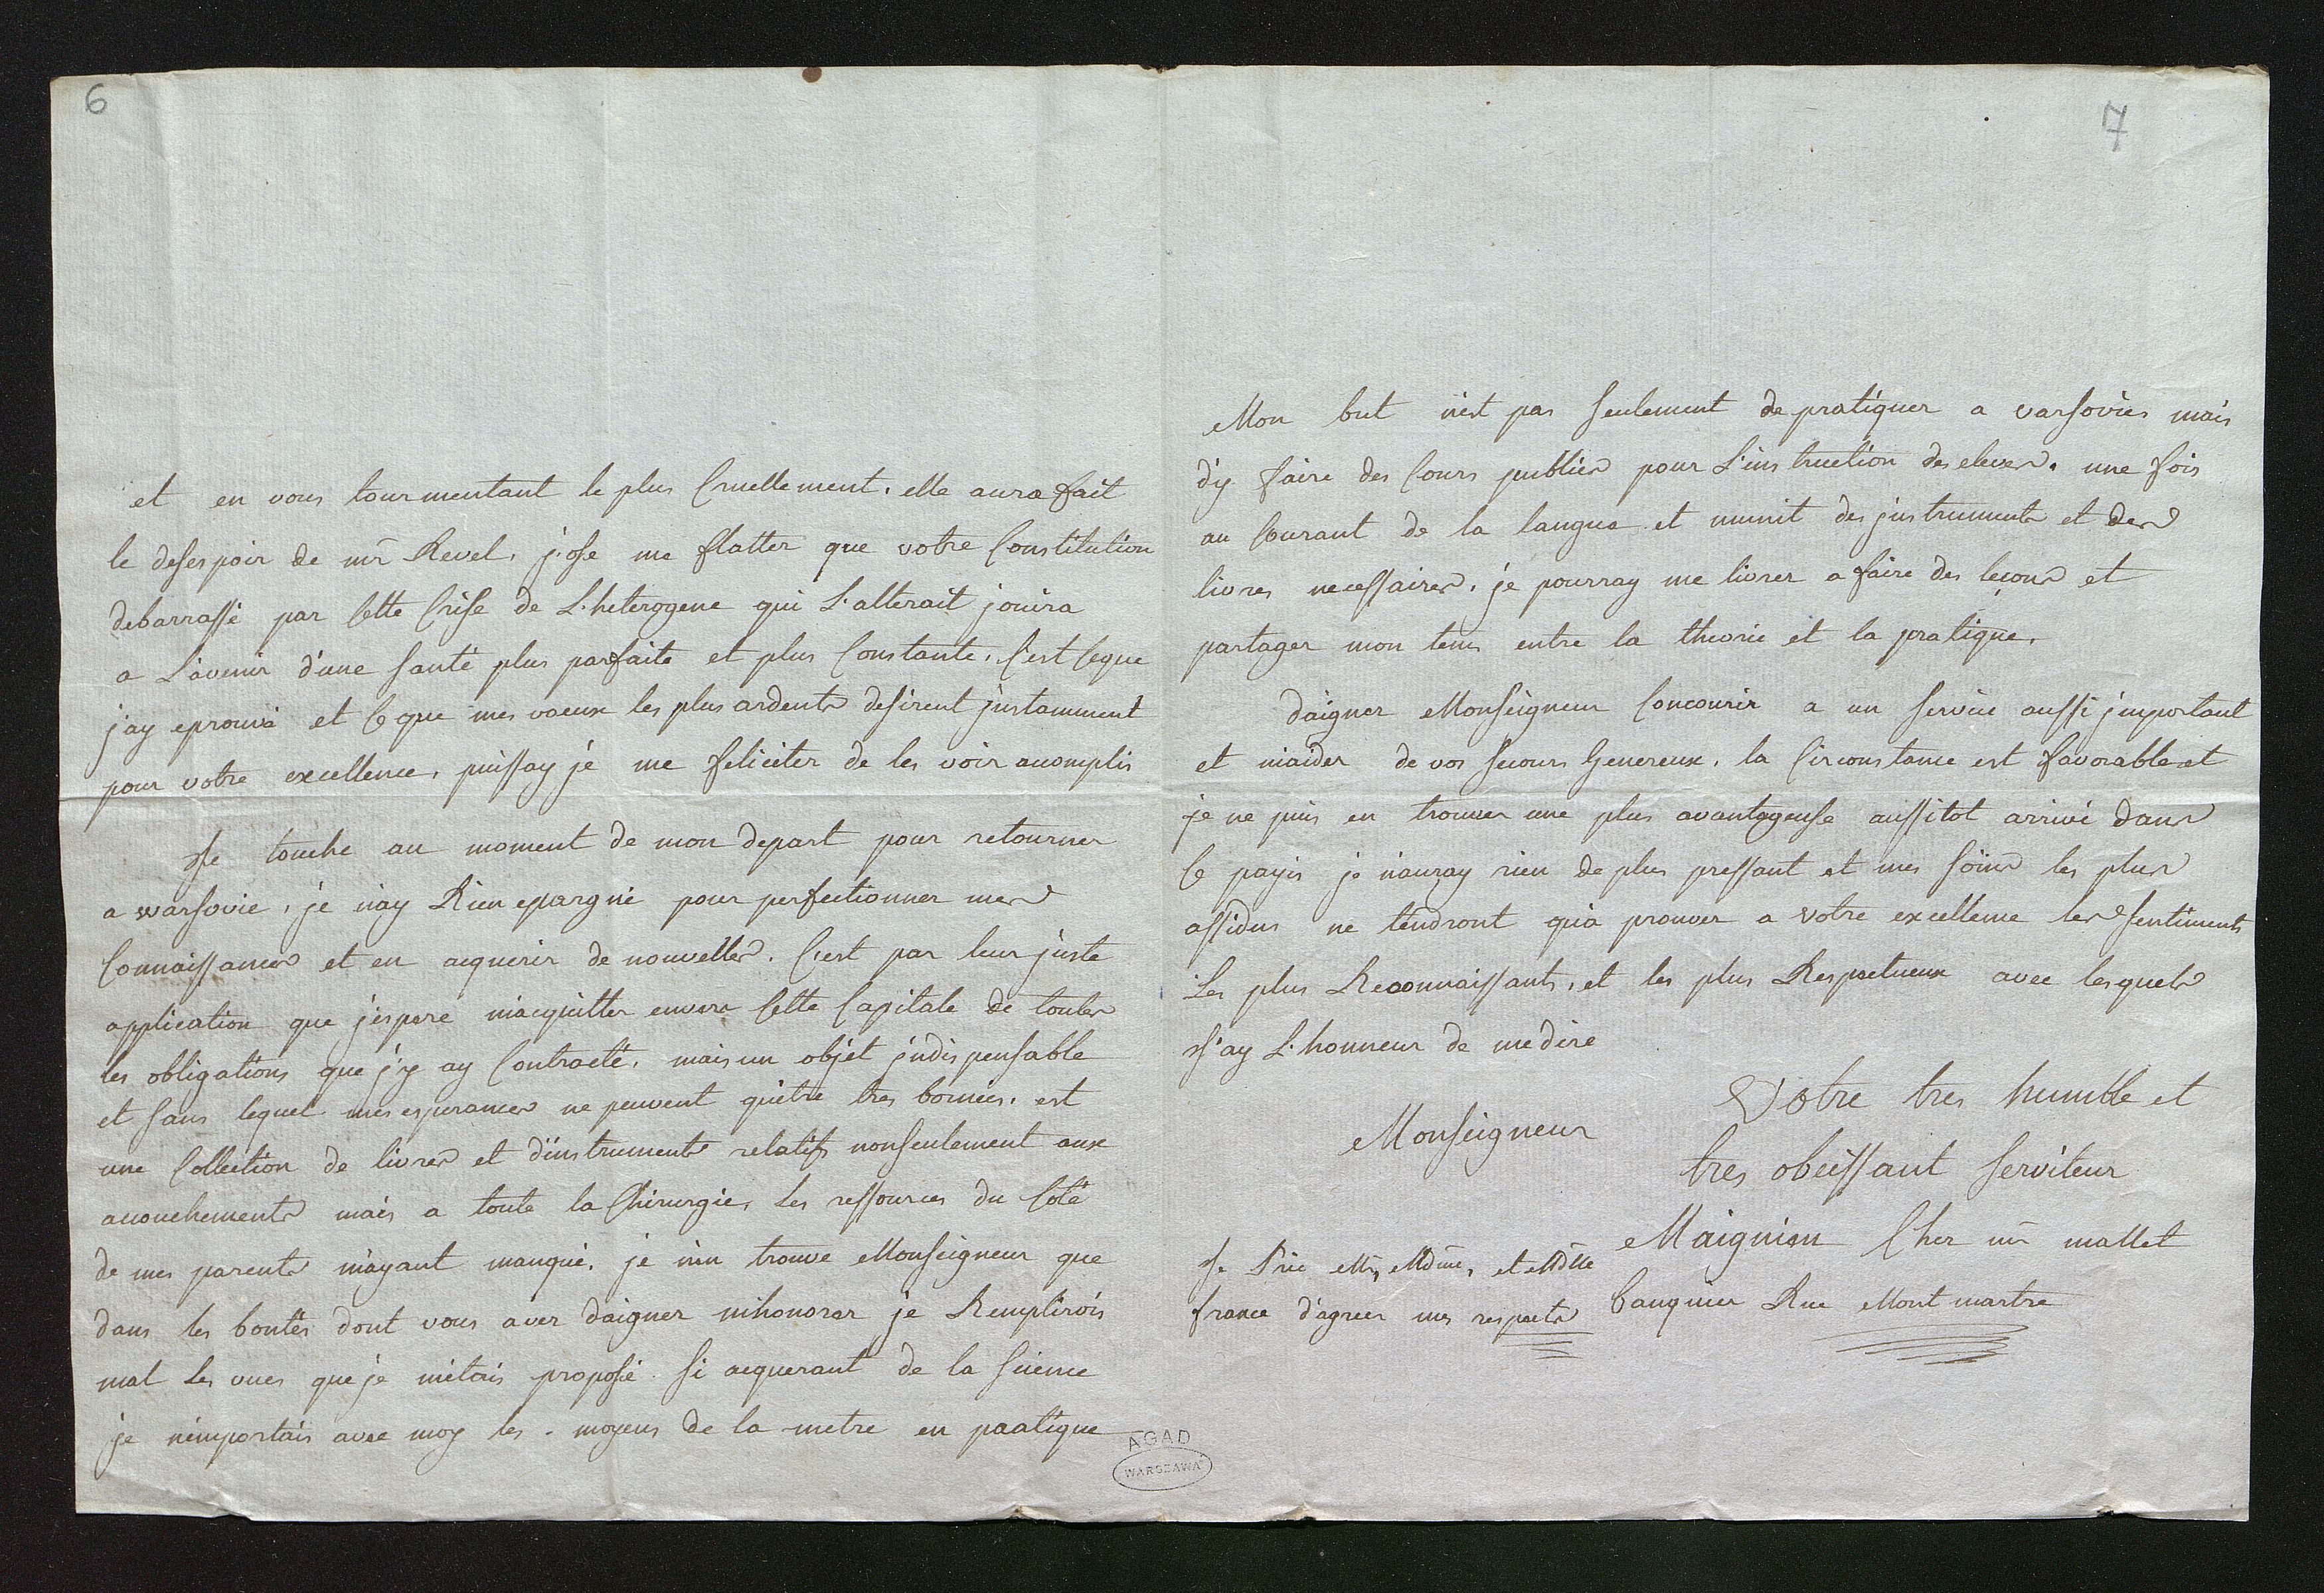 6
et en vous tourmentant le plus Cruellement. elle aura fait
le desespoir de mr Revel. j'ose me flatter que votre Constitution
debarrassé par Cette Crise de L'heterogene qui L'alterait jouira
a L'avenir d'une santé plus parfaite et plus Constante. C'est Ceque
j'ay eprouvé et Ce que mes voeux les plus ardents desirent justamment
pour votre excellence. puissay je me feliciter de les voir acomplis
Je touche au moment de mon depart pour retourner
a warsovie. je n'ay Rien epargné pour perfectionner mes
Connaissances et en acquerir de nouvelles. C'est par leur juste
application que j'espere m'acquitter envers Cette Capitale de toutes
les obligations que j'y ay Contracté. mais un objet jndispensable
et sans lequel mes esperances ne peuvent qu'etre tres bornées. est
une Collection de livres et d'instruments relatifs nonseulement aux
acouchements mais a toute la Chirurgie. les ressources du Coté
de mes parents m'ayant manqué. je n'en trouve Monseigneur que
dans les bontés dont vous avez daigner m'honorer je Remplirois
mal les vues que je m'etois proposé si acquerant de la science
je n'emportais avec moy les moyens de la metre en paatique
AGAD
WARSZAWA
7
Mon but n'est pas seulement de pratiquer a varsovies mais
d'y faire des Cours publics pour L'instruction des eleves. une fois
au Courant de la langue et munit des jnstruments et des
livres necessaires. je pourray me livrer a faire des leçons et
partager mon tems entre la theorie et la pratique.
daigner Monseigneur Concourir a un service aussi jmportant
et m'aider de vos secours Genereux. la Circonstance est favorable et
je ne puis en trouver une plus avantageuse aussitot arrivé dans
Ce payis je n'auray rien de plus pressant et mes soins les plus
assidus ne tendront qu'a prouver a votre excellence les sentiments
Les plus Reconnaissants, et les plus Respectueux avec lesquels
J'ay L'honneur de me dire
Monseigneur
Votre tres humble et
tres obeissant serviteur
Maignien Cher mr mallet
banquier Rue Mont martre
Je Prie Mr, Mdme, et Mdlle
france d'agreer mes respects